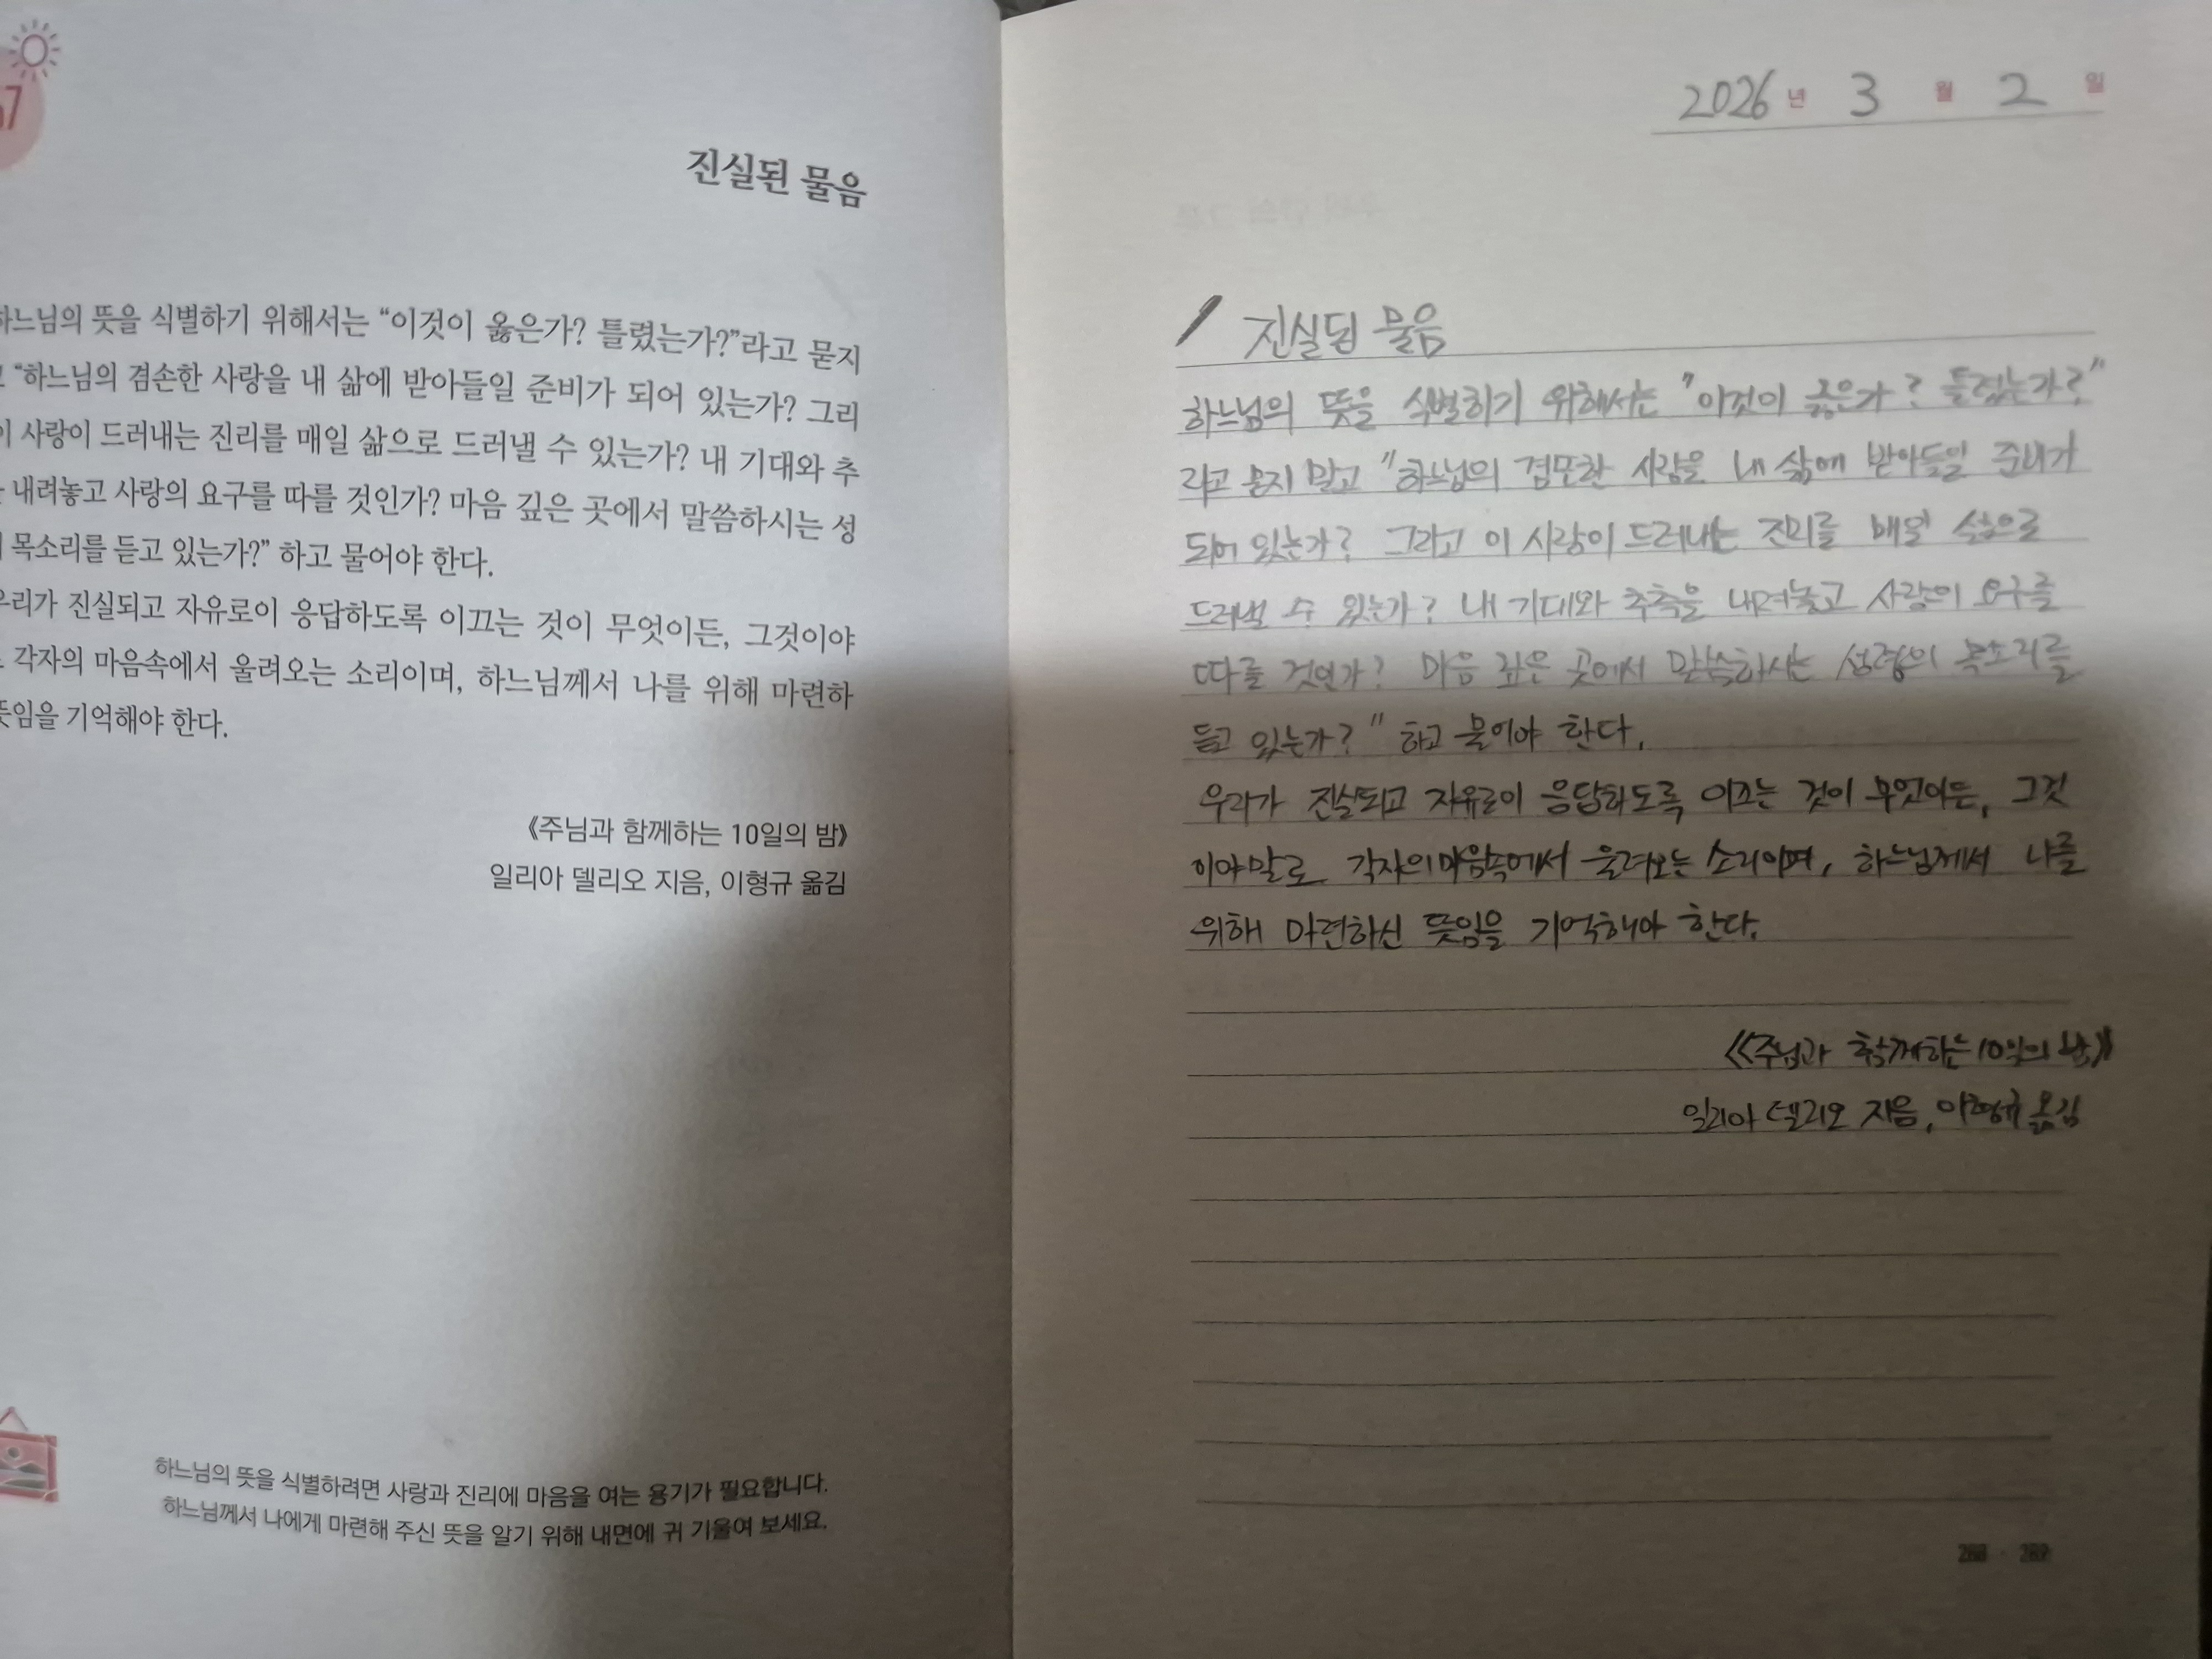 진실된 물음
하느님의 뜻을 식별하기 위해서는 “이것이 옳은가? 틀렸는가?”라고 묻지
“하느님의 겸손한 사랑을 내 삶에 받아들일 준비가 되어 있는가? 그리
이 사랑이 드러내는 진리를 매일 삶으로 드러낼 수 있는가? 내 기대와 추
내려놓고 사랑의 요구를 따를 것인가? 마음 깊은 곳에서 말씀하시는 성
목소리를 듣고 있는가?” 하고 물어야 한다.
우리가 진실되고 자유로이 응답하도록 이끄는 것이 무엇이든, 그것이야
각자의 마음속에서 울려오는 소리이며, 하느님께서 나를 위해 마련하
뜻임을 기억해야 한다.
《주님과 함께하는 10일의 밤》
일리아 델리오 지음, 이형규 옮김
하느님의 뜻을 식별하려면 사랑과 진리에 마음을 여는 용기가 필요합니다.
하느님께서 나에게 마련해 주신 뜻을 알기 위해 내면에 귀 기울여 보세요.
2026년 3월 2일
진실된 물음
하느님의 뜻을 식별하기 위해서는 "이것이 옳은가? 틀렸는가?"
라고 묻지 말고 "하느님의 겸손한 사랑을 내 삶에 받아들일 준비가
되어 있는가? 그리고 이 사랑이 드러내는 진리를 매일 삶으로
드러낼 수 있는가? 내 기대와 추측을 내려놓고 사랑의 요구를
따를 것인가? 마음 깊은 곳에서 말씀하시는 성령의 목소리를
듣고 있는가?" 하고 물어야 한다.
우리가 진실되고 자유로이 응답하도록 이끄는 것이 무엇이든, 그것
이야말로 각자의 마음속에서 울려오는 소리이며, 하느님께서 나를
위해 마련하신 뜻임을 기억해야 한다.
《주님과 함께하는 10일의 밤》
일리아 델리오 지음, 이형규 옮김